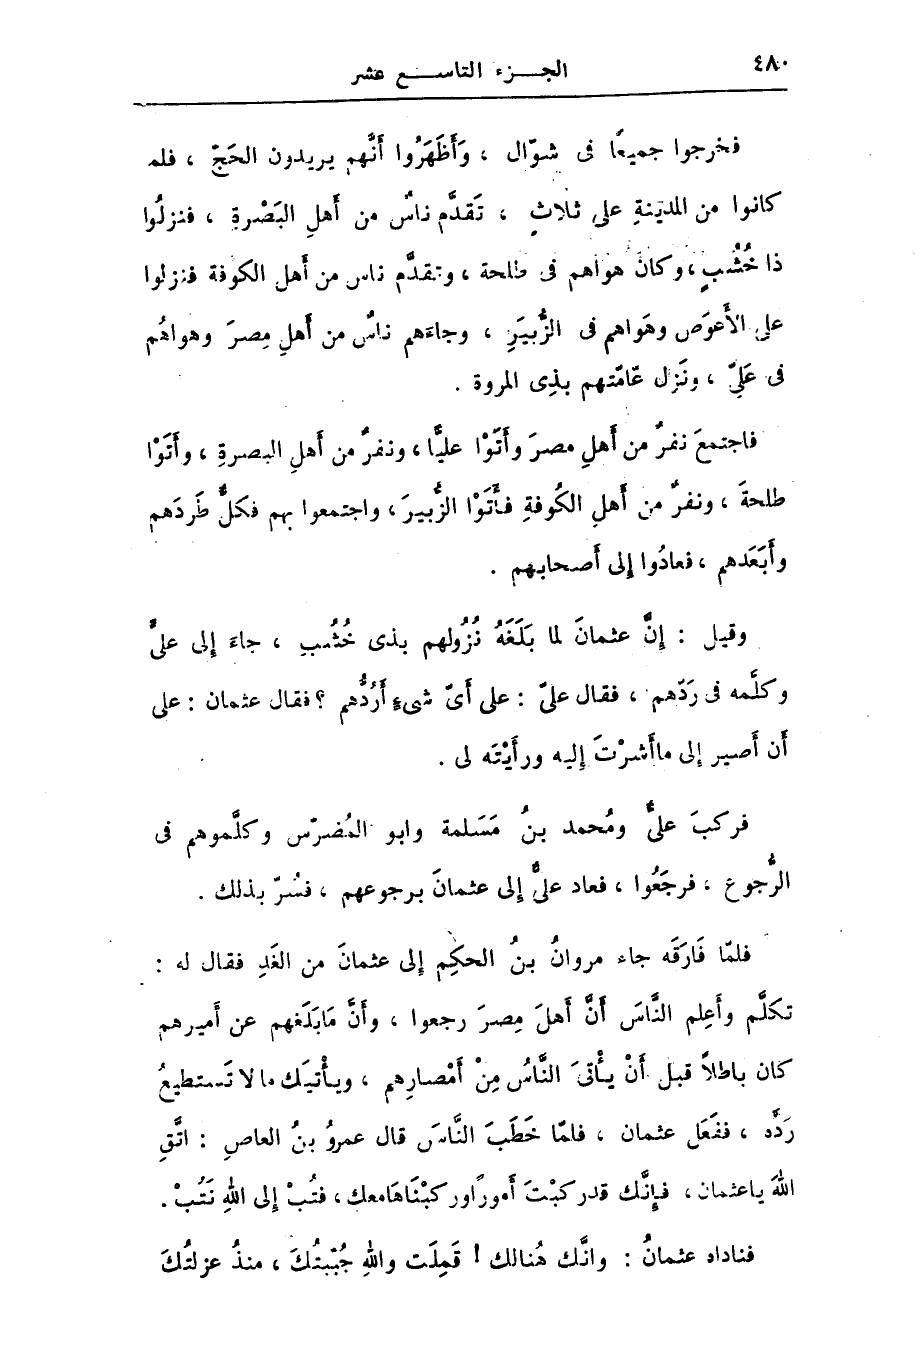 ٤٨٠
الجـــزء التاســـع عشر
فخرجوا جميعًا فى شوّال ، وَأَظَهَرُوا أنَّهم يريدون الحَجّ ، فلم
كانوا من المدينةِ على ثلاثٍ ، تَقدَّم ناسٌ من أَهلِ البَصْرةِ ، فنزلُوا
ذا خُشُبٍ ، وكان هواهم فى طلحة ، وتقدَّم ناس من أهل الكوفة فنزلوا
على الأَعوَص وهَواهم فى الزُّبيَرِ ، وجاءَهم ناسٌ من أَهلِ مِصرَ وهواهُم
فى عَلِىّ ، ونَزل عَامّتهم بذِى المروة .
فاجتمعَ نفرٌ من أَهلِ مصرَ وأَتَوْا عليًّا ، ونفرٌ من أَهلِ البصرةِ ، وأَتَوْا
طلحةَ ، ونفرٌ من أَهلِ الكُوفةِ فأَتَوْا الزُّبيرَ ، واجتمعوا بهم فكلٌّ طَردَهم
وأَبَعَدهم ، فعادُوا إلى أَصحابهم .
وقيل : إنَّ عثمانَ لما بَلَغَهُ نُزُولهم بذى خُشُبٍ ، جاءَ إلى علىٍّ
وكلَّمه فى رَدّهم ، فقال علىّ : على أَىّ شىءٍ أَرُدُّهم ؟ فقال عثمان : على
أَن أَصير إلى ماأَشرْتَ إليه ورأَيْتَه لى .
فركبَ علىٌّ ومُحمد بنُ مَسَلمة وابو المُضرّس وكلَّموهم فى
الرُّجوع ، فرجَعُوا ، فعاد علىٌّ إلى عثمانَ برجوعهم ، فسُرّ بذلك .
فلمّا فَارَقَه جاء مروانُ بنُ الحكِم إلى عثمانَ من الغَدِ فقال له :
تكلَّم وأَعِلم النَّاسَ أَنَّ أَهلَ مِصرَ رجعوا ، وأَنَّ مَابَلَغهم عن أَميرهم
كان باطلاً قبل أَنْ يأْتىَ النَّاسُ مِنْ أَمْصارِهم ، ويأْتيَك ما لا تَستطيعُ
رَدَّه ، ففَعَل عثمان ، فلمّا خَطَبَ النَّاسَ قال عمرُو بنُ العاصِ : اتَّقِ
اللهَ ياعثمان ، فإِنَّك قدركبْتَ أُموراًوركبْنَاهَامعك ، فتُبْ إلى اللهِ نَتُبْ .
فناداه عثمانُ : وانَّك هُنالك ! قَمِلَت واللهِ جُبّبتُكَ ، منذُ عزلتُكَ